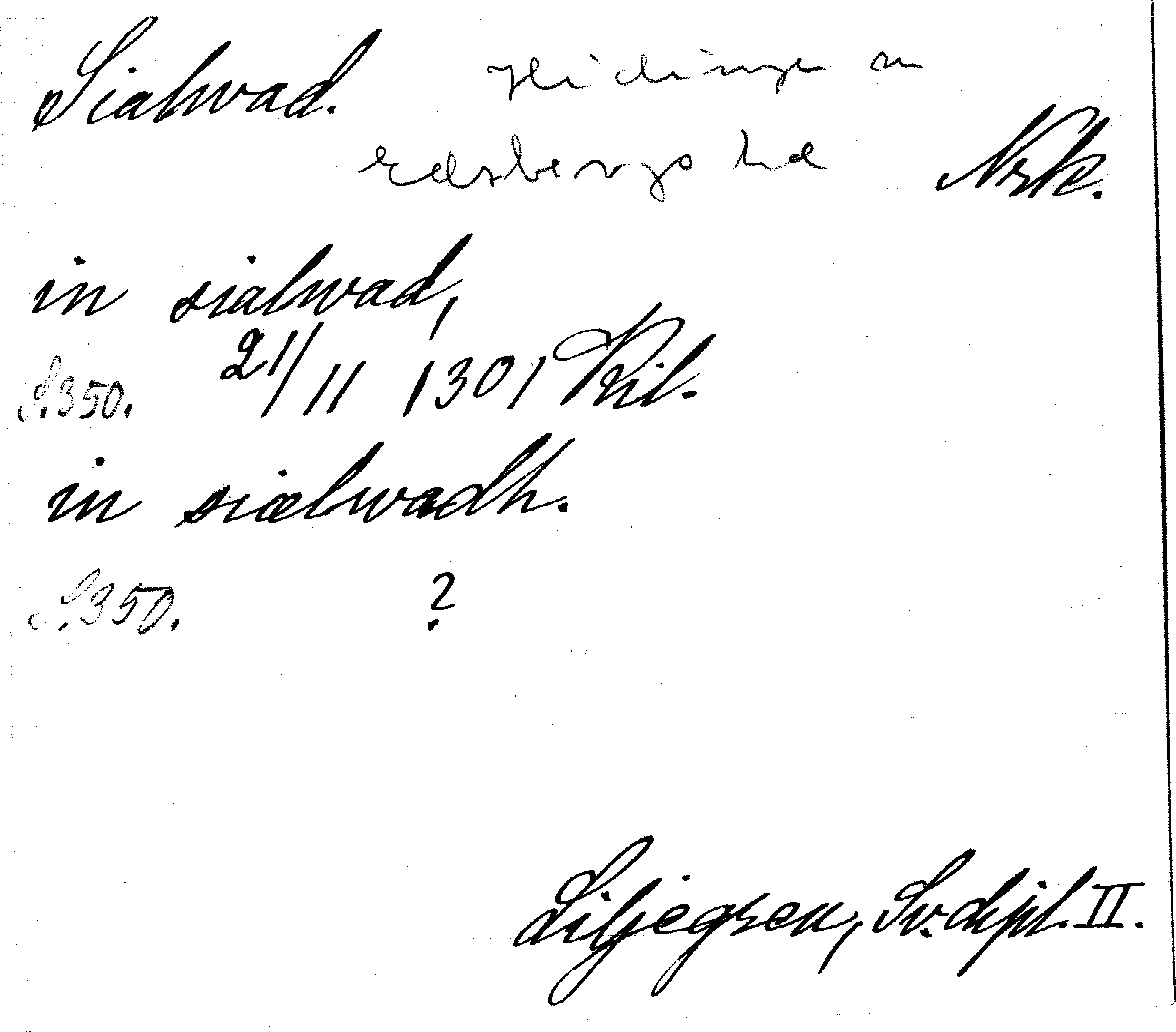 Sialwad. Hidinge sn
Edsbergs hd Nrk.
in sialwad,
S. 350. 21/11 1301 Ril.
in siælwadh.
S. 350. ?
Liljegren, Sv. dipl. II.